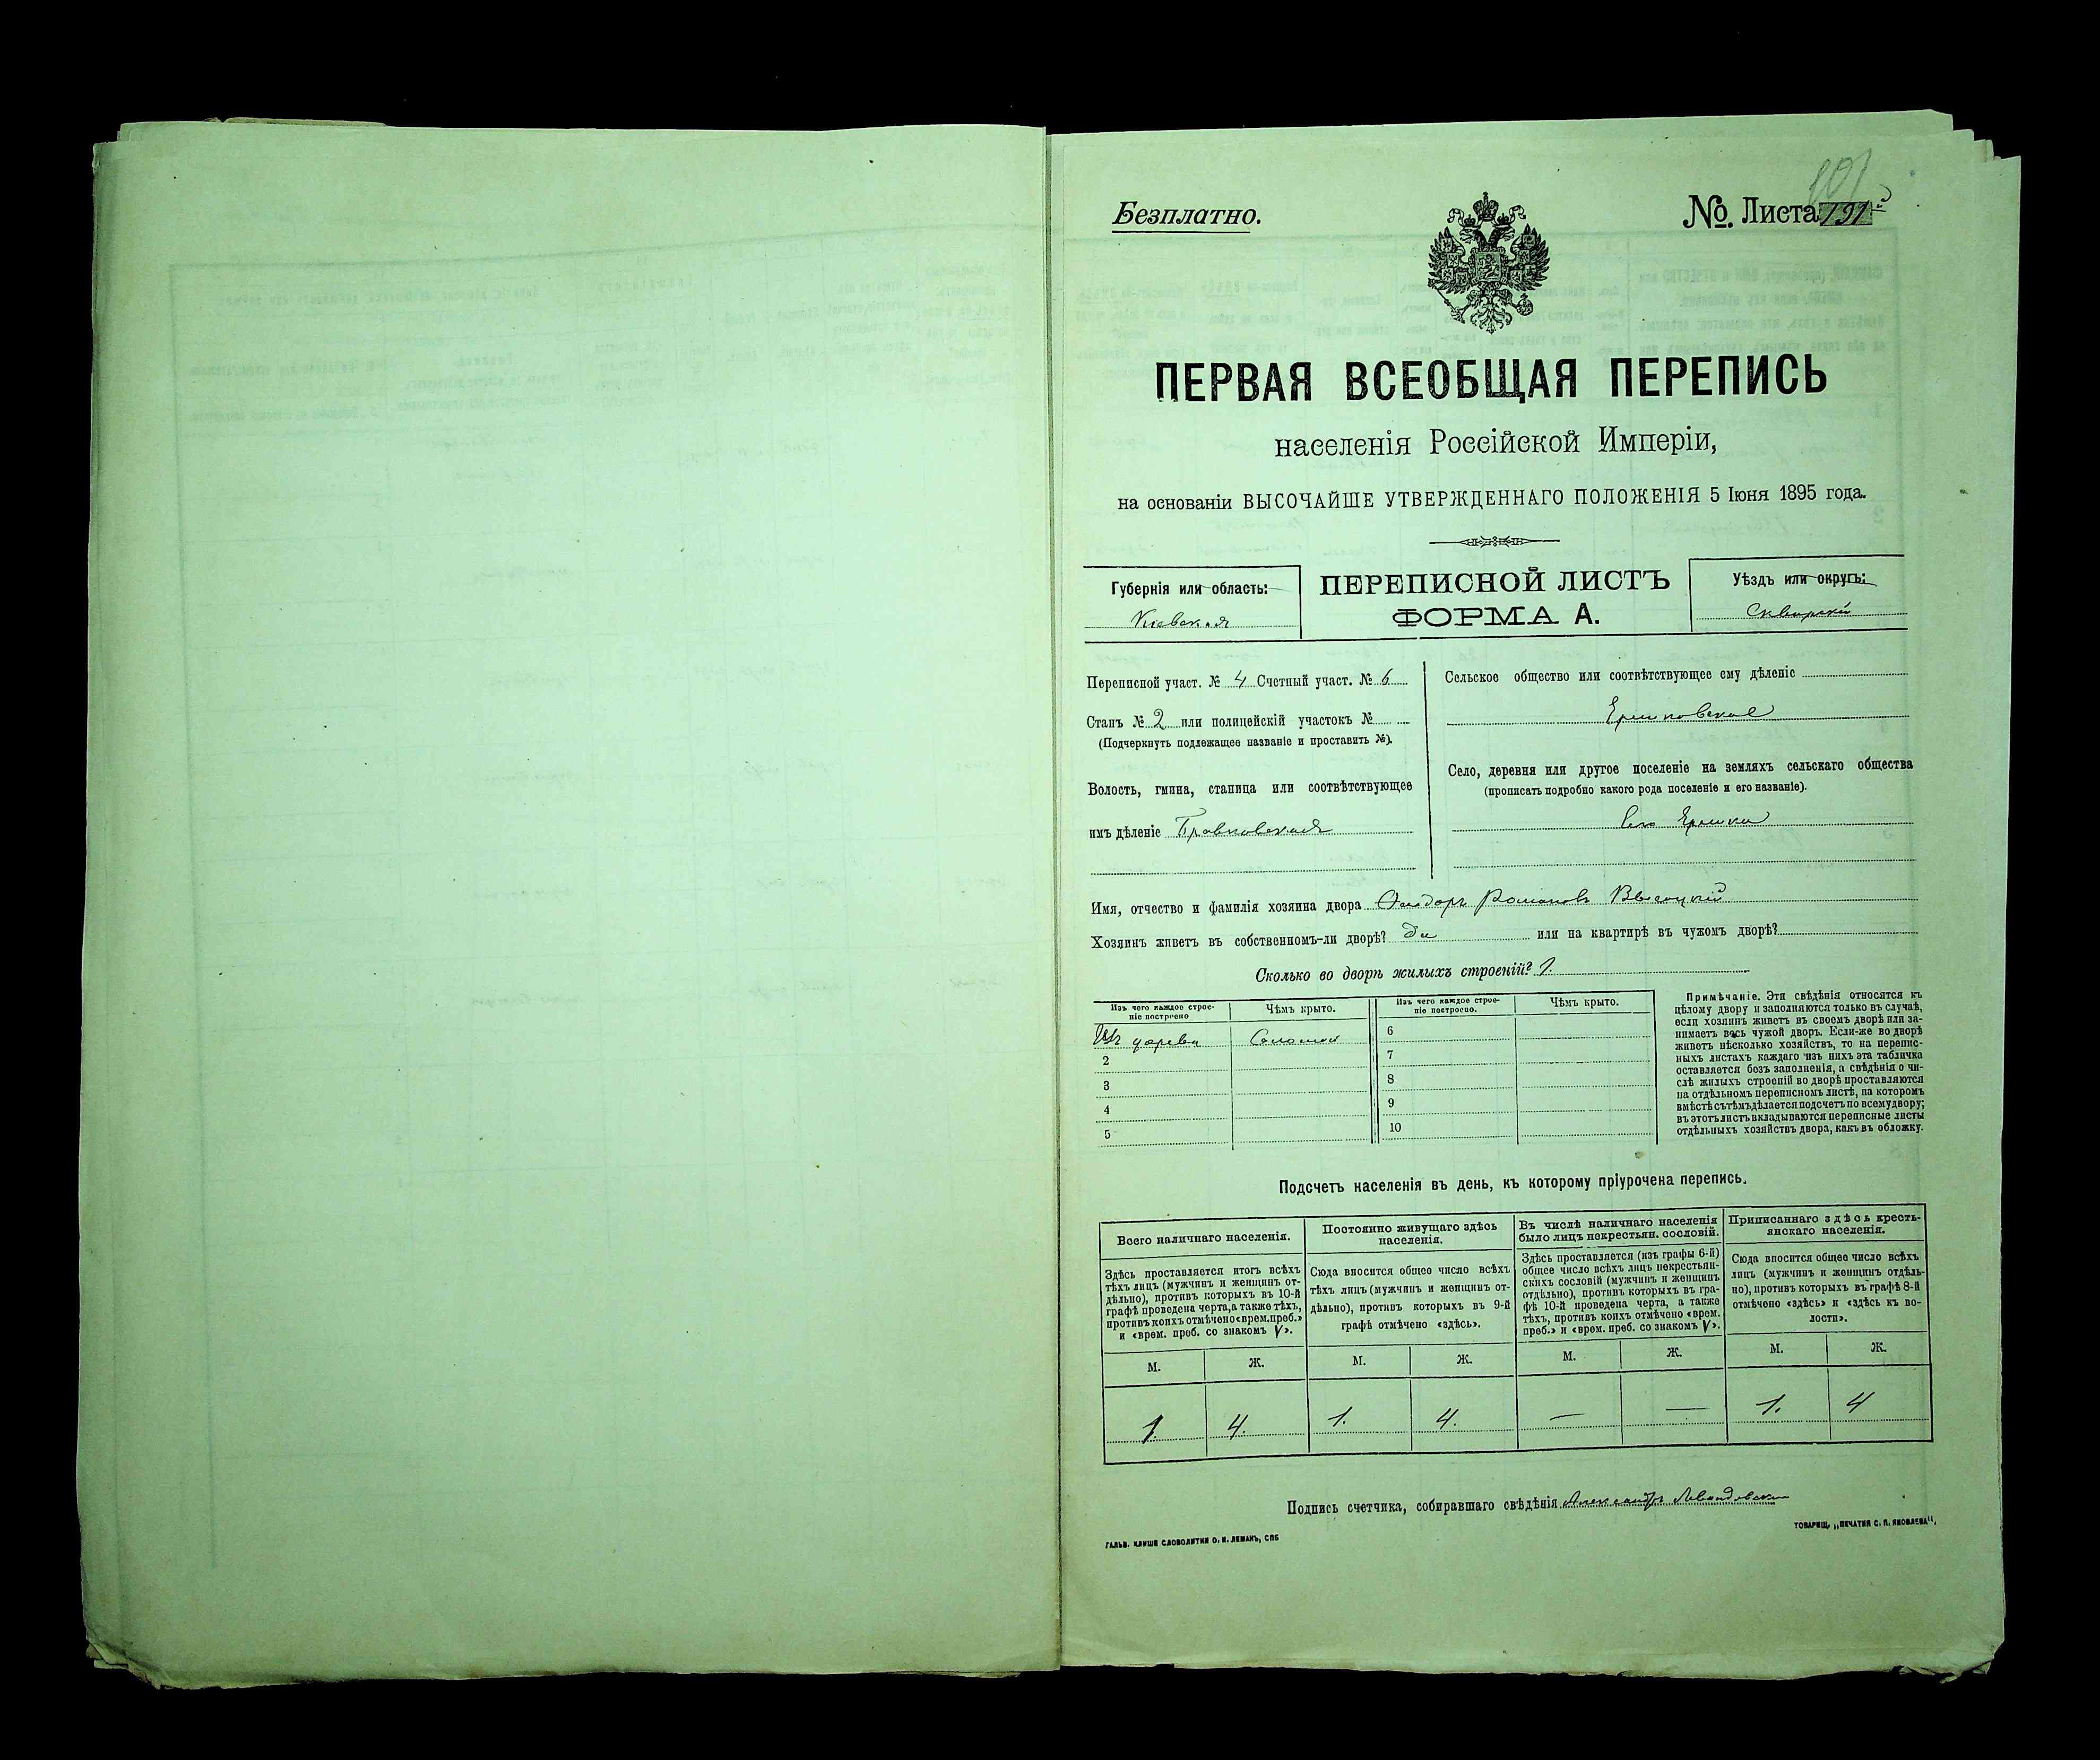 101
Безплатно.
№. Листа 191й
ПЕРВАЯ ВСЕОБЩАЯ ПЕРЕПИСЬ
населенія Россійской Имперіи,
на основаніи ВЫСОЧАЙШЕ УТВЕРЖДЕННАГО ПОЛОЖЕНІЯ 5 Іюня 1895 года.
Губернія или область:
Кіевская
ПЕРЕПИСНОЙ ЛИСТЪ
ФОРМА А.
Уѣздъ или округъ:
Сквирскій
Переписной участ. № 4 Счетный участ. № 6
Станъ № 2 или полицейскій участокъ №
(Подчеркнуть подлежащее названіе и проставить №).
Волость, гмина, станица или соотвѣтствующее
имъ дѣленіе
Сельское общество или соотвѣтствующее ему дѣленіе
Село, деревня или другое поселеніе на земляхъ сельскаго общества
(прописать подробно какого рода поселеніе и его названіе).
Село
Имя, отчество и фамилія хозяина двора Ѳеодоръ Романовъ Высоцкій
Хозяинъ живетъ въ собственномъ-ли дворѣ? да или на квартирѣ въ чужомъ дворѣ?
Сколько во дворѣ жилыхъ строеній? 1.
Изъ чего каждое строе-
ніе построено
Чѣмъ крыто.
Изъ чего каждое строе-
ніе построено.
Чѣмъ крыто.
Изъ дерева Соломой
2
3
4
5
6
7
8
9
10
Примѣчаніе. Эти свѣдѣнія относятся къ
цѣлому двору и заполняются только въ случаѣ,
если хозяинъ живетъ въ своемъ дворѣ или за-
нимаетъ весь чужой дворъ. Если-же во дворѣ
живетъ нѣсколько хозяйствъ, то на перепис-
ныхъ листахъ каждаго изъ нихъ эта табличка
оставляется безъ заполненія, а свѣдѣнія о чи-
слѣ жилыхъ строеній во дворѣ проставляются
на отдѣльномъ переписномъ листѣ, на которомъ
вмѣстѣ съ тѣмъ дѣлается подсчетъ по всему двору;
въ этотъ листъ вкладываются переписные листы
отдѣльныхъ хозяйствъ двора, какъ въ обложку.
Подсчетъ населенія въ день, къ которому пріурочена перепись.
Всего наличнаго населенія.
Здѣсь проставляется итогъ всѣхъ
тѣхъ лицъ (мужчинъ и женщинъ от-
дѣльно), противъ которыхъ въ 10-й
графѣ проведена черта, а также тѣхъ,
противъ коихъ отмѣчено «врем. преб.»
и «врем. преб. со знакомъ V».
Постоянно живущаго здѣсь
населенія.
Сюда вносится общее число всѣхъ
тѣхъ лицъ (мужчинъ и женщинъ от-
дѣльно), противъ которыхъ въ 9-й
графѣ отмѣчено «здѣсь».
Въ числѣ наличнаго населенія
было лицъ некрестьян. сословій.
Здѣсь проставляется (изъ графы 6-й)
общее число всѣхъ лицъ некрестьян-
скихъ сословій (мужчинъ и женщинъ
отдѣльно), противъ которыхъ въ гра-
фѣ 10-й проведена черта, а также
тѣхъ, противъ коихъ отмѣчено «врем.
преб.» и «врем. преб. со знакомъ V».
Приписаннаго здѣсь кресть-
янскаго населенія.
Сюда вносится общее число всѣхъ
лицъ (мужчинъ и женщинъ отдѣль-
но), противъ которыхъ въ графѣ 8-й
отмѣчено «здѣсь» и «здѣсь къ во-
лости».
М. Ж. М. Ж. М. Ж. М. Ж.
1. 4. 1. 4. — — 1. 4
Подпись счетчика, собиравшаго свѣдѣнія Александръ
ГАЛЬВ. КЛИШЕ СЛОВОЛИТНИ О. И. ЛЕМАНЪ, СПБ
ТОВАРИЩ. „ПЕЧАТНЯ С. П. ЯКОВЛЕВА“,